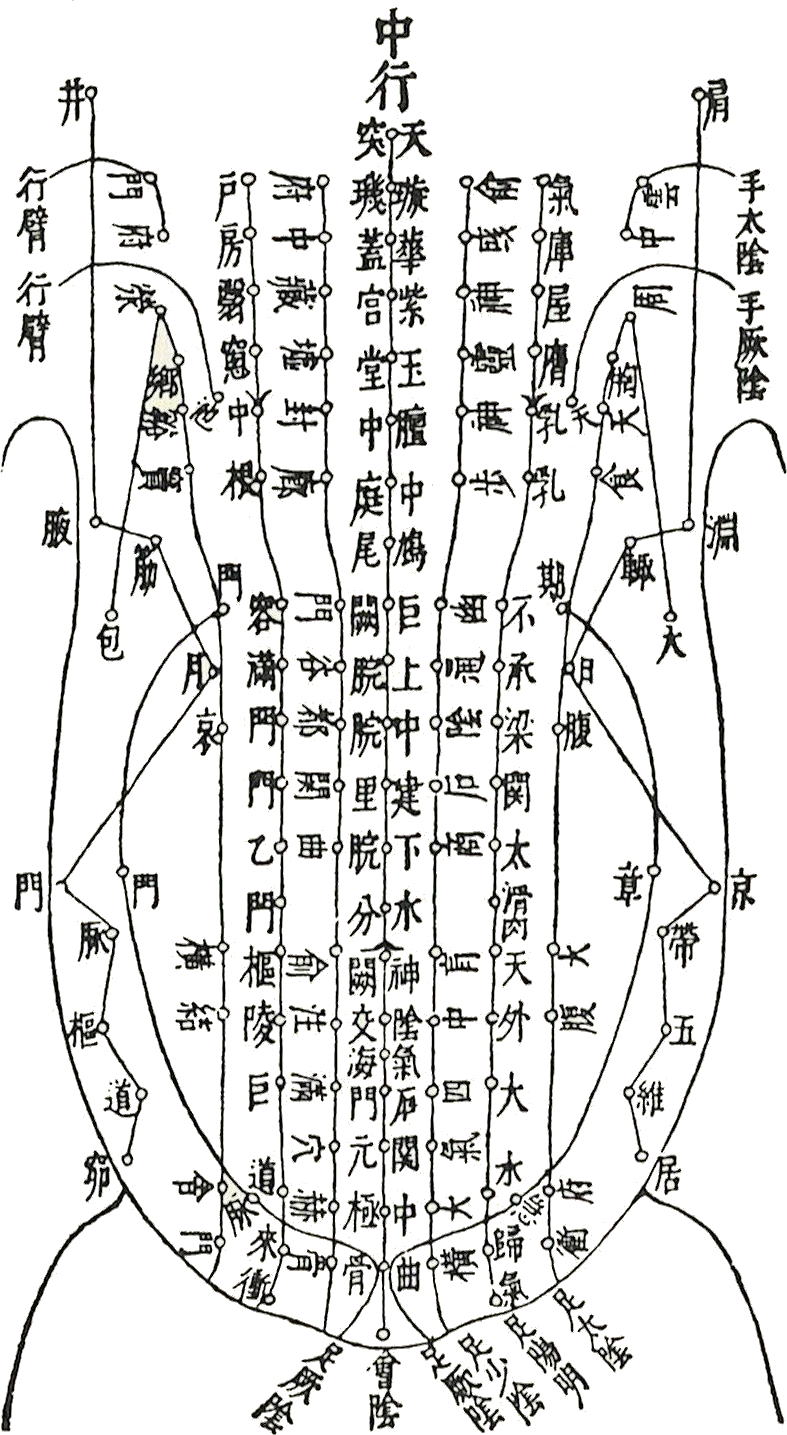 中行
天突
璇璣
華蓋
紫宮
玉堂
膻中
中庭
鳩尾
巨闕
上脘
中脘
建里
下脘
水分
神闕
陰交
氣海
石門
関元
中極
曲骨
會陰
俞府
彧中
神藏
靈墟
神封
步廊
幽門
通谷
陰都
石関
商曲
肓俞
中注
四滿
氣穴
大赫
橫骨
氣戶
庫房
屋翳
膺窓
乳中
乳根
不容
承滿
梁門
関門
太乙
滑肉門
天樞
外陵
大巨
水道
歸來
氣衝
雲門
中府
手太陰行臂
天池
手厥陰行臂
周榮
胸鄉
天谿
食竇
大包
腹哀
大橫
腹結
府舍
衝門
期門
章門
肩井
淵腋
輒筋
日月
京門
帶脈
五樞
維道
居窌
足太陰
足陽明
足少陰
足厥陰
足厥陰